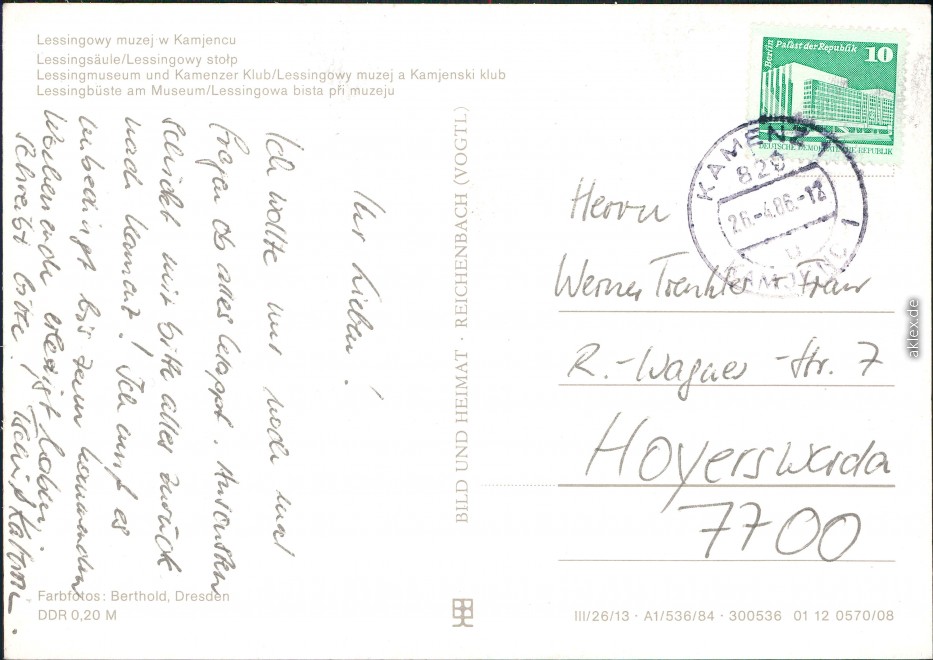 Lessingowy muzej w Kamjencu
Lessingsäule/Lessingowy stołp
Lessingmuseum und Kamenzer Klub/Lessingowy muzej a Kamjenski klub
Lessingbüste am Museum/Lessingowa bista při muzeju
Ihr Lieben!
Ich wollte nur noch mal
fragen ob alles klappt. Ansonsten
schickt mir bitte alles zurück
nach Kamenz! Ich muß es
unbedingt bis zum kommenden
Wochenende erledigt haben.
Schreibt bitte! Tschüß
Farbfotos: Berthold, Dresden
DDR 0,20 M
BILD UND HEIMAT · REICHENBACH (VOGTL)
Berlin Palast der Republik 10
DEUTSCHE DEMOKRATISCHE REPUBLIK
KAMENZ 1
26.-4.86.-12
KAMJENC 1
Herrn
Werner Trenkler + Frau
R.-Wagner-Str. 7
Hoyerswerda
7700
III/26/13 · A1/536/84 · 300536 01 12 0570/08
aklex.de